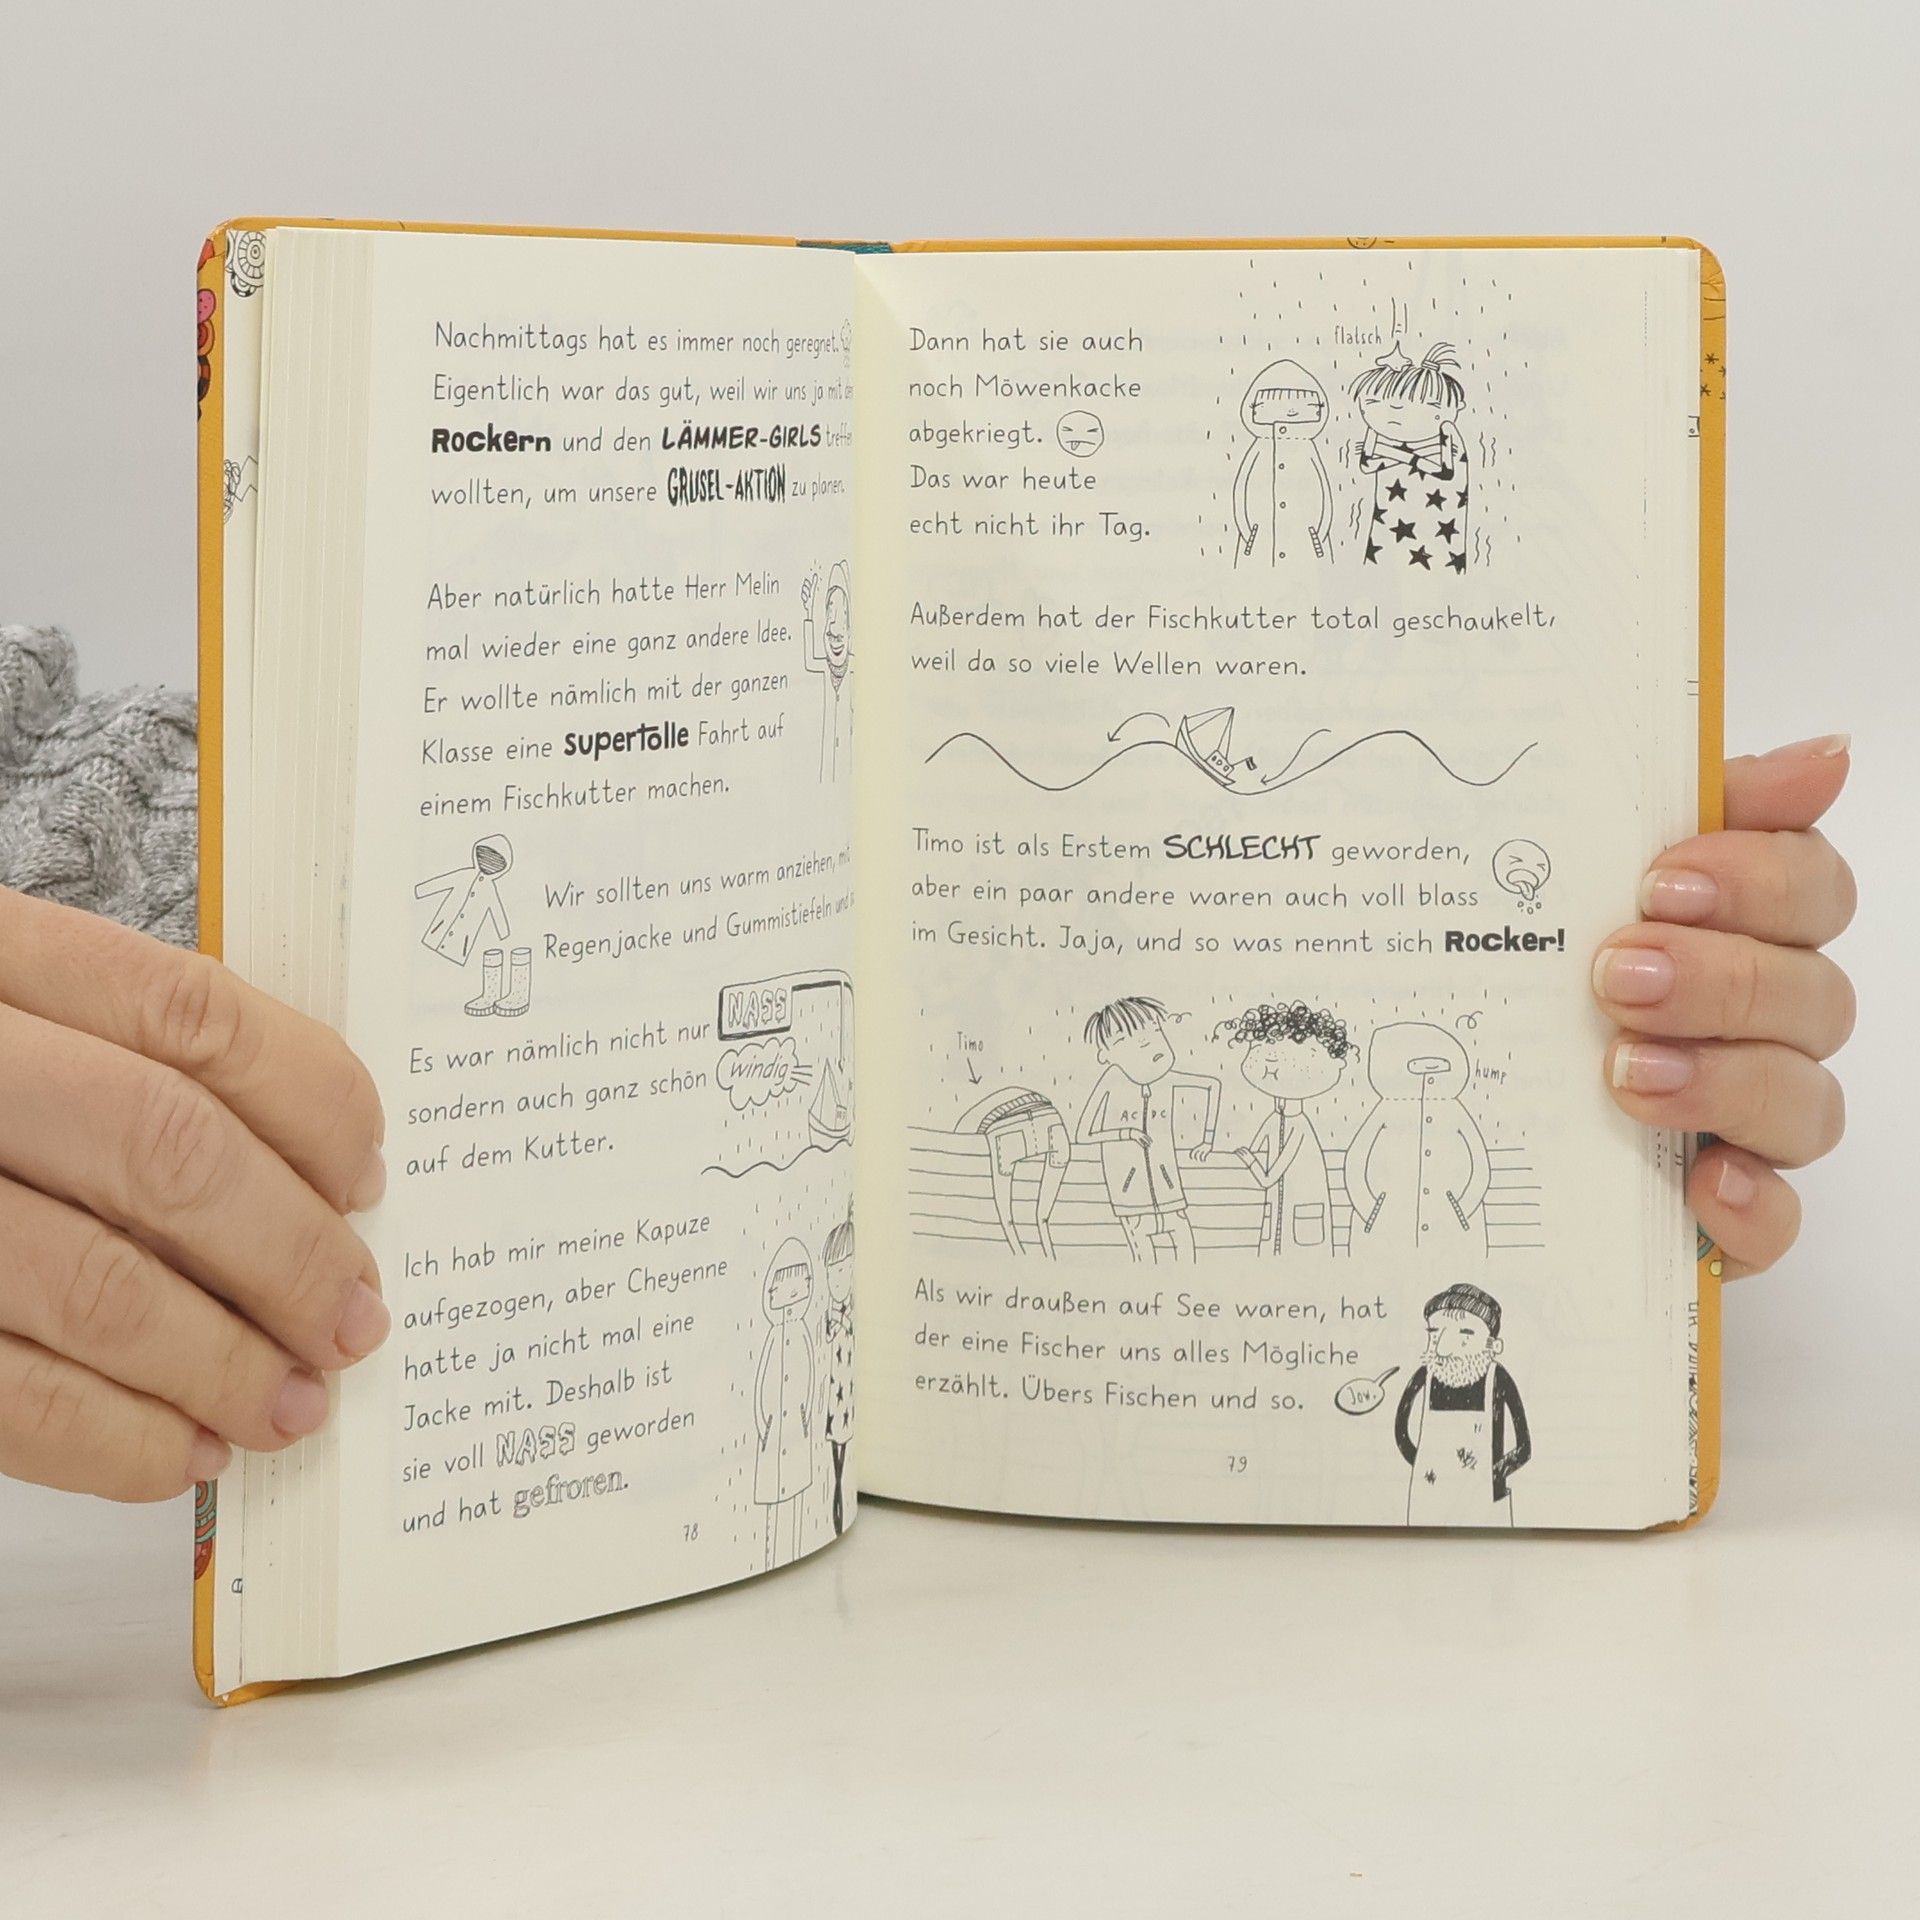 Nachmittags hat es immer noch geregnet.
Eigentlich war das gut, weil wir uns ja mit den
Rockern und den LÄMMER-GIRLS treffen
wollten, um unsere GRUSEL-AKTION zu planen.
Aber natürlich hatte Herr Melin
mal wieder eine ganz andere Idee.
Er wollte nämlich mit der ganzen
Klasse eine supertolle Fahrt auf
einem Fischkutter machen.
Wir sollten uns warm anziehen, mit
Regenjacke und Gummistiefeln und
Es war nämlich nicht nur NASS
sondern auch ganz schön windig
auf dem Kutter.
Ich hab mir meine Kapuze
aufgezogen, aber Cheyenne
hatte ja nicht mal eine
Jacke mit. Deshalb ist
sie voll NASS geworden
und hat gefroren.
78
Dann hat sie auch
noch Möwenkacke
abgekriegt.
Das war heute
echt nicht ihr Tag.
flatsch
Außerdem hat der Fischkutter total geschaukelt,
weil da so viele Wellen waren.
Timo ist als Erstem SCHLECHT geworden,
aber ein paar andere waren auch voll blass
im Gesicht. Jaja, und so was nennt sich Rocker!
Timo
AC DC
hump
Als wir draußen auf See waren, hat
der eine Fischer uns alles Mögliche
erzählt. Übers Fischen und so.
Jow.
79